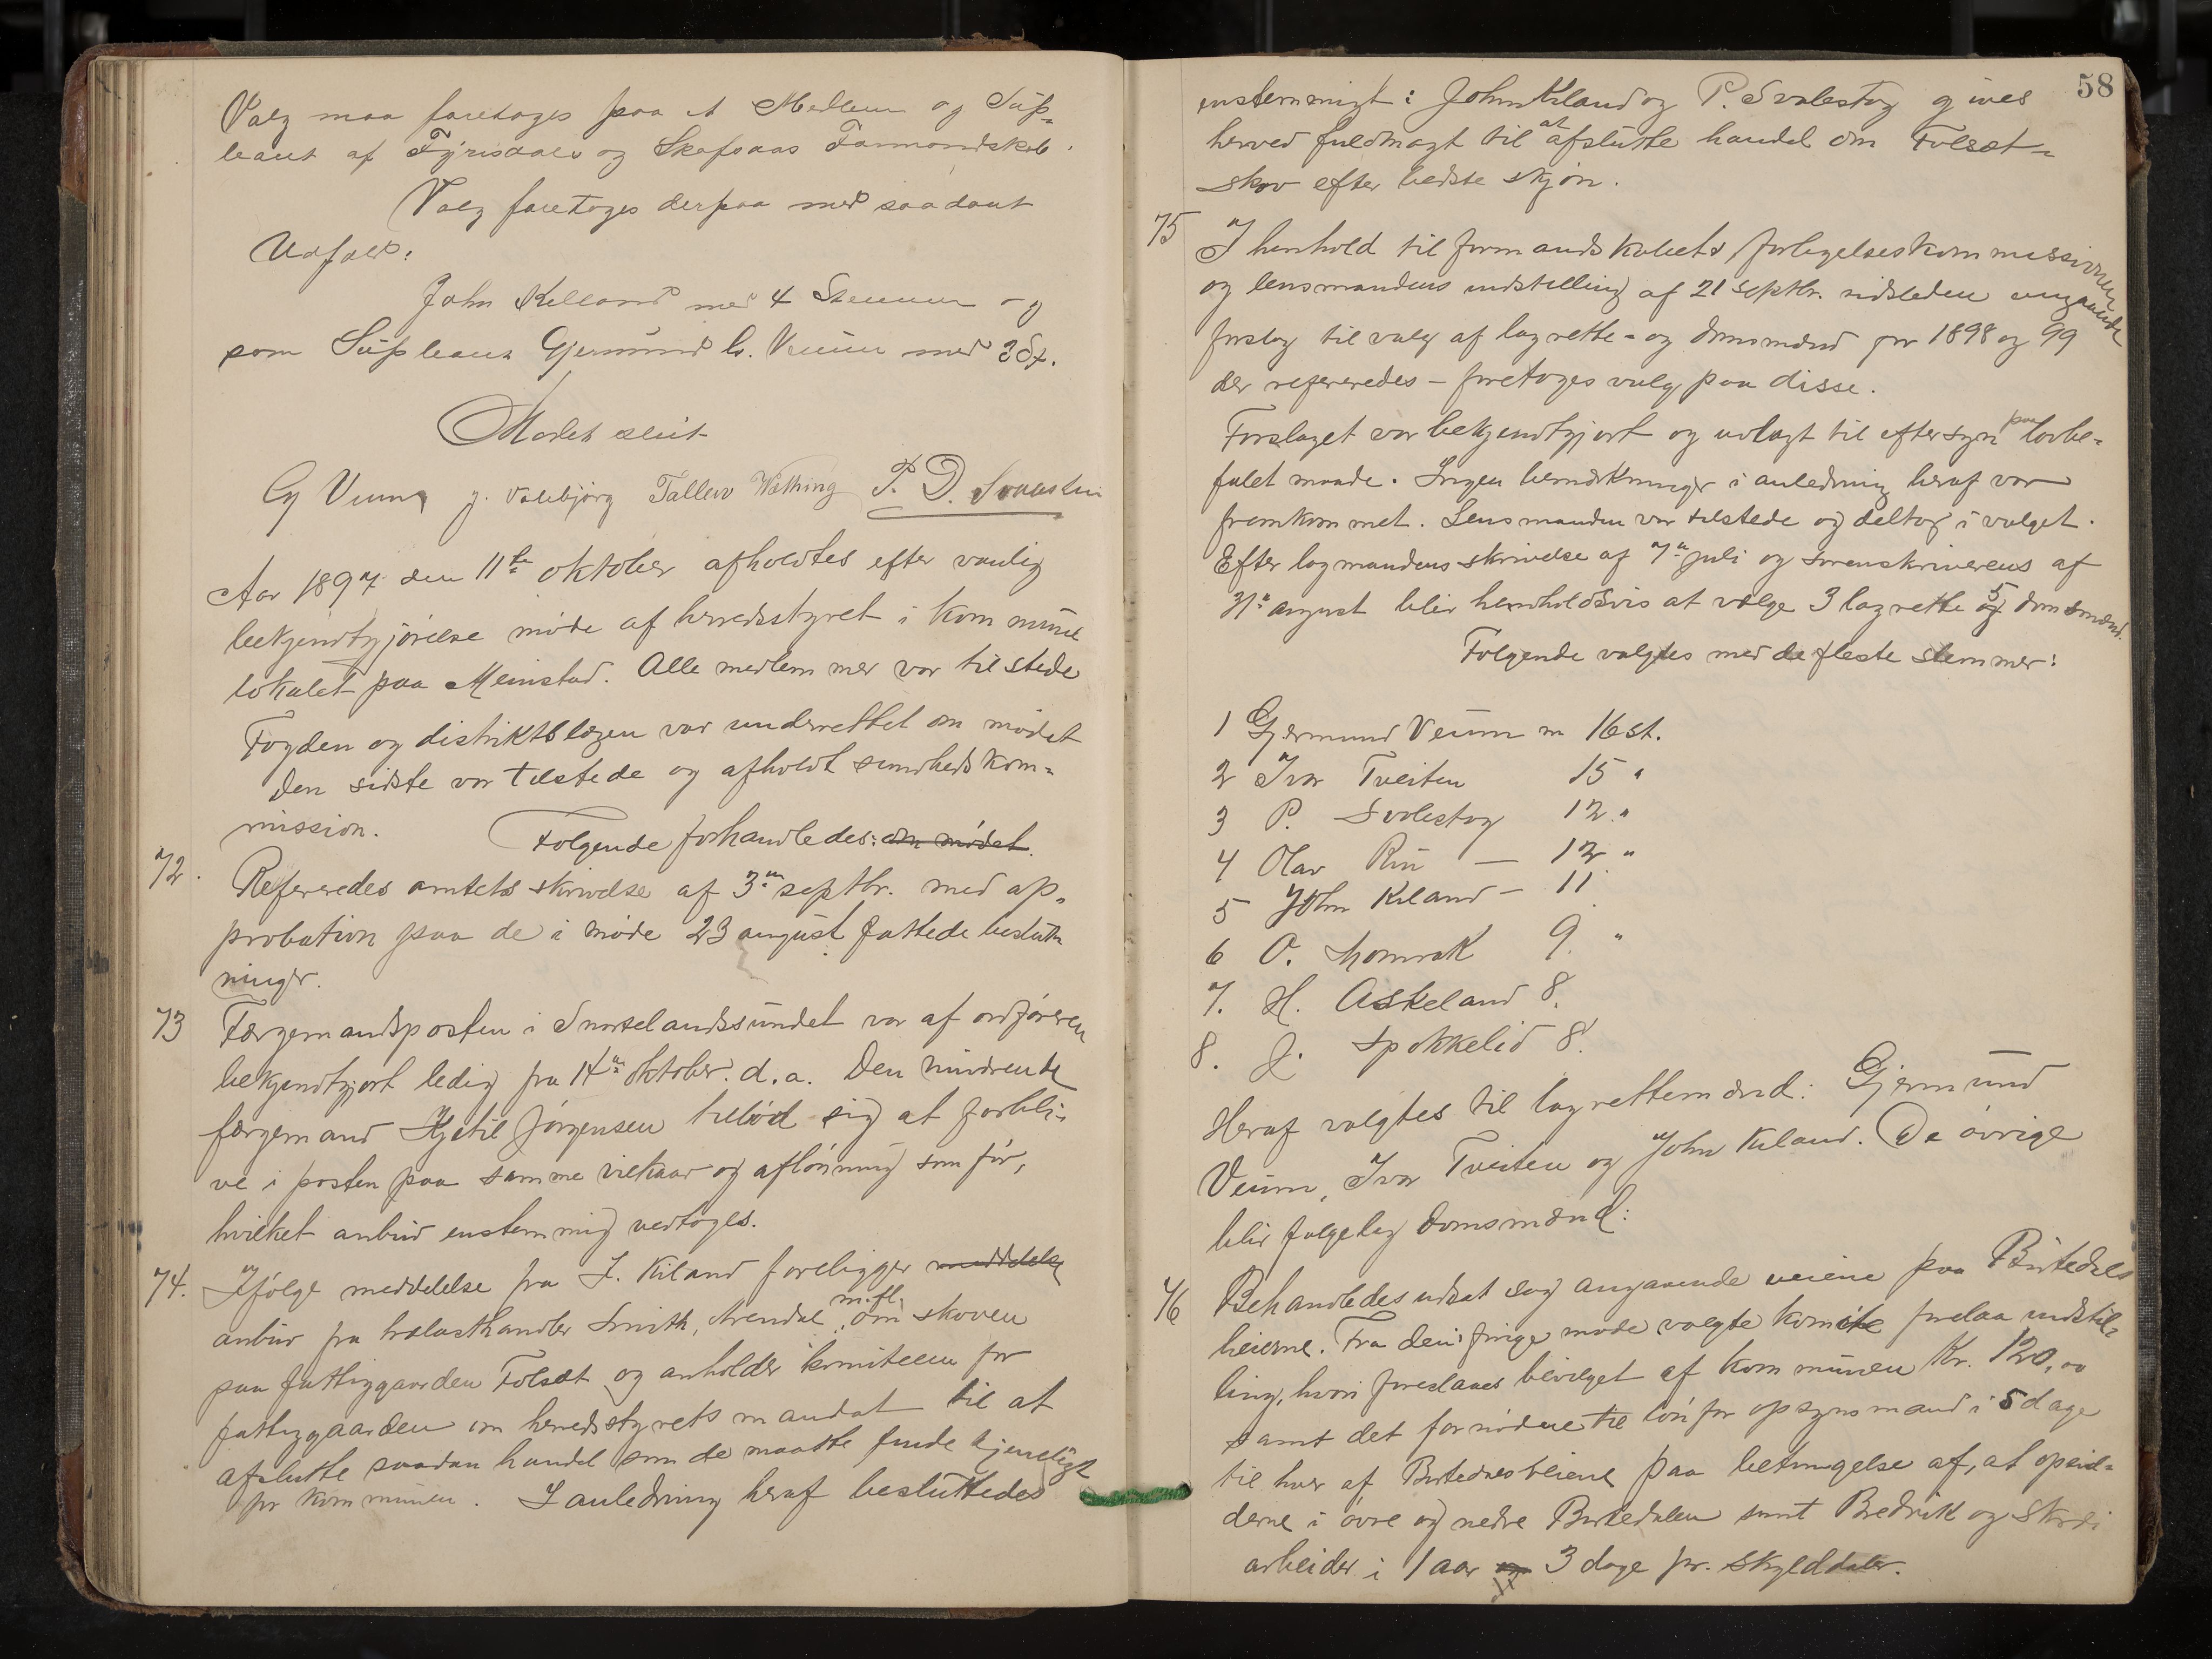 Valg maa foretages paa et Medlem og Sup-
leant af Fyrisdals og Skafsaas Formandskab.
Valg foretages derpaa med saadant
Udfald:
John Kelland med 4 Stemmer og
som Supleant Gjermund Veum med 3 St.
Mødet slut
G Veum J. Valebjørg Tallev P. D. Svaastu
Aar 1897 den 11te oktober afholdtes efter vanlig
bekjendtgjørelse møde af herredsstyret i kommune
lokalet paa Meinstad. Alle medlemmer var tilstede
Fogden og distriktslægen var underrettet om mødet
Den sidste var tilstede og afholdt sundhedskom-
mission. Følgende forhandledes: om mødet.
72. Refereredes amtets skrivelse af 3die septbr. med ap-
probation paa de i møde 23 august fattede beslut
ninger.
73 Færgemandsposten i Snartelandssundet var af ordføreren
bekjendtgjort ledig fra 14de oktober d.a. Den nuværende
færgemand Kjetil Jørgensen tilbød sig at forbli-
ve i posten paa samme vilkaar og aflønning som før,
hvilket anbud enstemmig vedtoges.
74. Ifølge meddelelse fra J. Kiland foreligger meddelelse
anbud fra trælasthandler Smith, Arendal m.fl. om skoven
paa fattiggaarden Folsæt og anholder komiteen for
fattiggaarden om herredsstyrets mandat til at
afslutte saadan handel som de maatte finde tjenligt
for kommunen. I anledning heraf besluttedes
58
enstemmigt: John Kiland og P. Svalestog gives
herved fuldmagt til at afslutte handel om Folsæt-
skov efter bedste skjøn.
75 I henhold til formandskabets, forligelseskommissionen
og lensmandens indstilling af 21 septbr. sidstleden angaaende
forslag til valg af lagrette- og domsmænd for 1898 og 99
der refereredes - foretoges valg paa disse.
Forslaget var bekjendtgjort og udlagt til eftersyn paa lovbe-
falet maade. Ingen bemærkninger i anledning heraf var
fremkommet. Lensmanden var tilstede og deltog i valget.
Efter lagmandens skrivelse af 7de juli og sorenskriverens af
31te august blir henholdsvis at vælge 3 lagrette og 5 domsmænd.
Følgende valgtes med de fleste stemmer:
1 Gjermund Veum m 16 st.
2 Ivar Tveiten 15 "
3 P. Svalestog 12 "
4 Olav Rui — 12 "
5 John Kiland — 11
6 O. Momrak 9. "
7. H. Askeland 8.
8. J. Spokkelid 8.
Heraf valgtes til lagrettemænd: Gjermund
Veum, Ivar Tveiten og John Kiland. De øvrige
blir følgelig domsmænd:
76 Behandledes udsat sag angaaende veiene paa Birtedals
heierne. Fra den i forrige møde valgte komite forelaa indstil-
ling, hvori foreslaaes bevilget af kommunen Kr. 120,00
samt det fornødne til løn for opsynsmand i 5 dage
til hver af Birtedalsveiene paa betingelse af, at opsid-
derne i øvre og nedre Birtedalen samt Bredvik og
arbeider i 1 aar 3 dage pr. skylddaler.